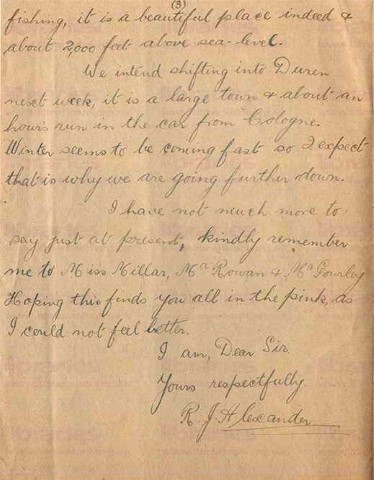 (3)
fishing, it is a beautiful place indeed &
about 2,000 feet above sea-level.
We intend shifting into Duren
next week, it is a large town & about an
hours run in the car from Cologne.
Winter seems to be coming fast so I expect
that is why we are going further down.
I have not much more to
say just at present, kindly remember
me to Miss Millar, Mr Rowan & Mr Gourley
Hoping this finds you all in the pink, as
I could not feel better.
I am, Dear Sir.
Yours respectfully
R. J. Alexander